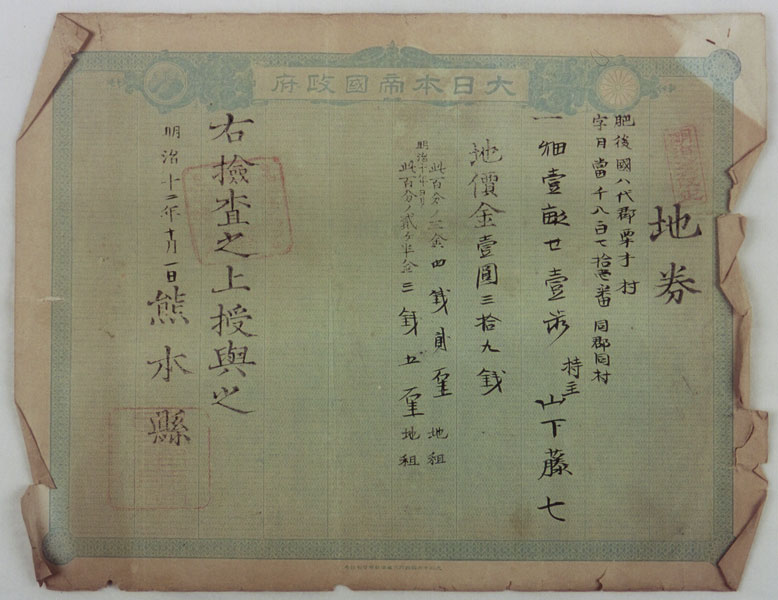 大日本帝國政府
地券
肥後國八代郡栗木村
字月當千八百七拾壱番 同郡同村
一畑壹畝廿壹歩 持主 山下藤七
地價金壹圓三拾九錢
此百分ノ三金四錢貳厘 地租
明治十年ヨリ
此百分ノ貳ヶ半金三錢五厘 地租
右檢査之上授與之
明治十二年十月一日
熊本縣